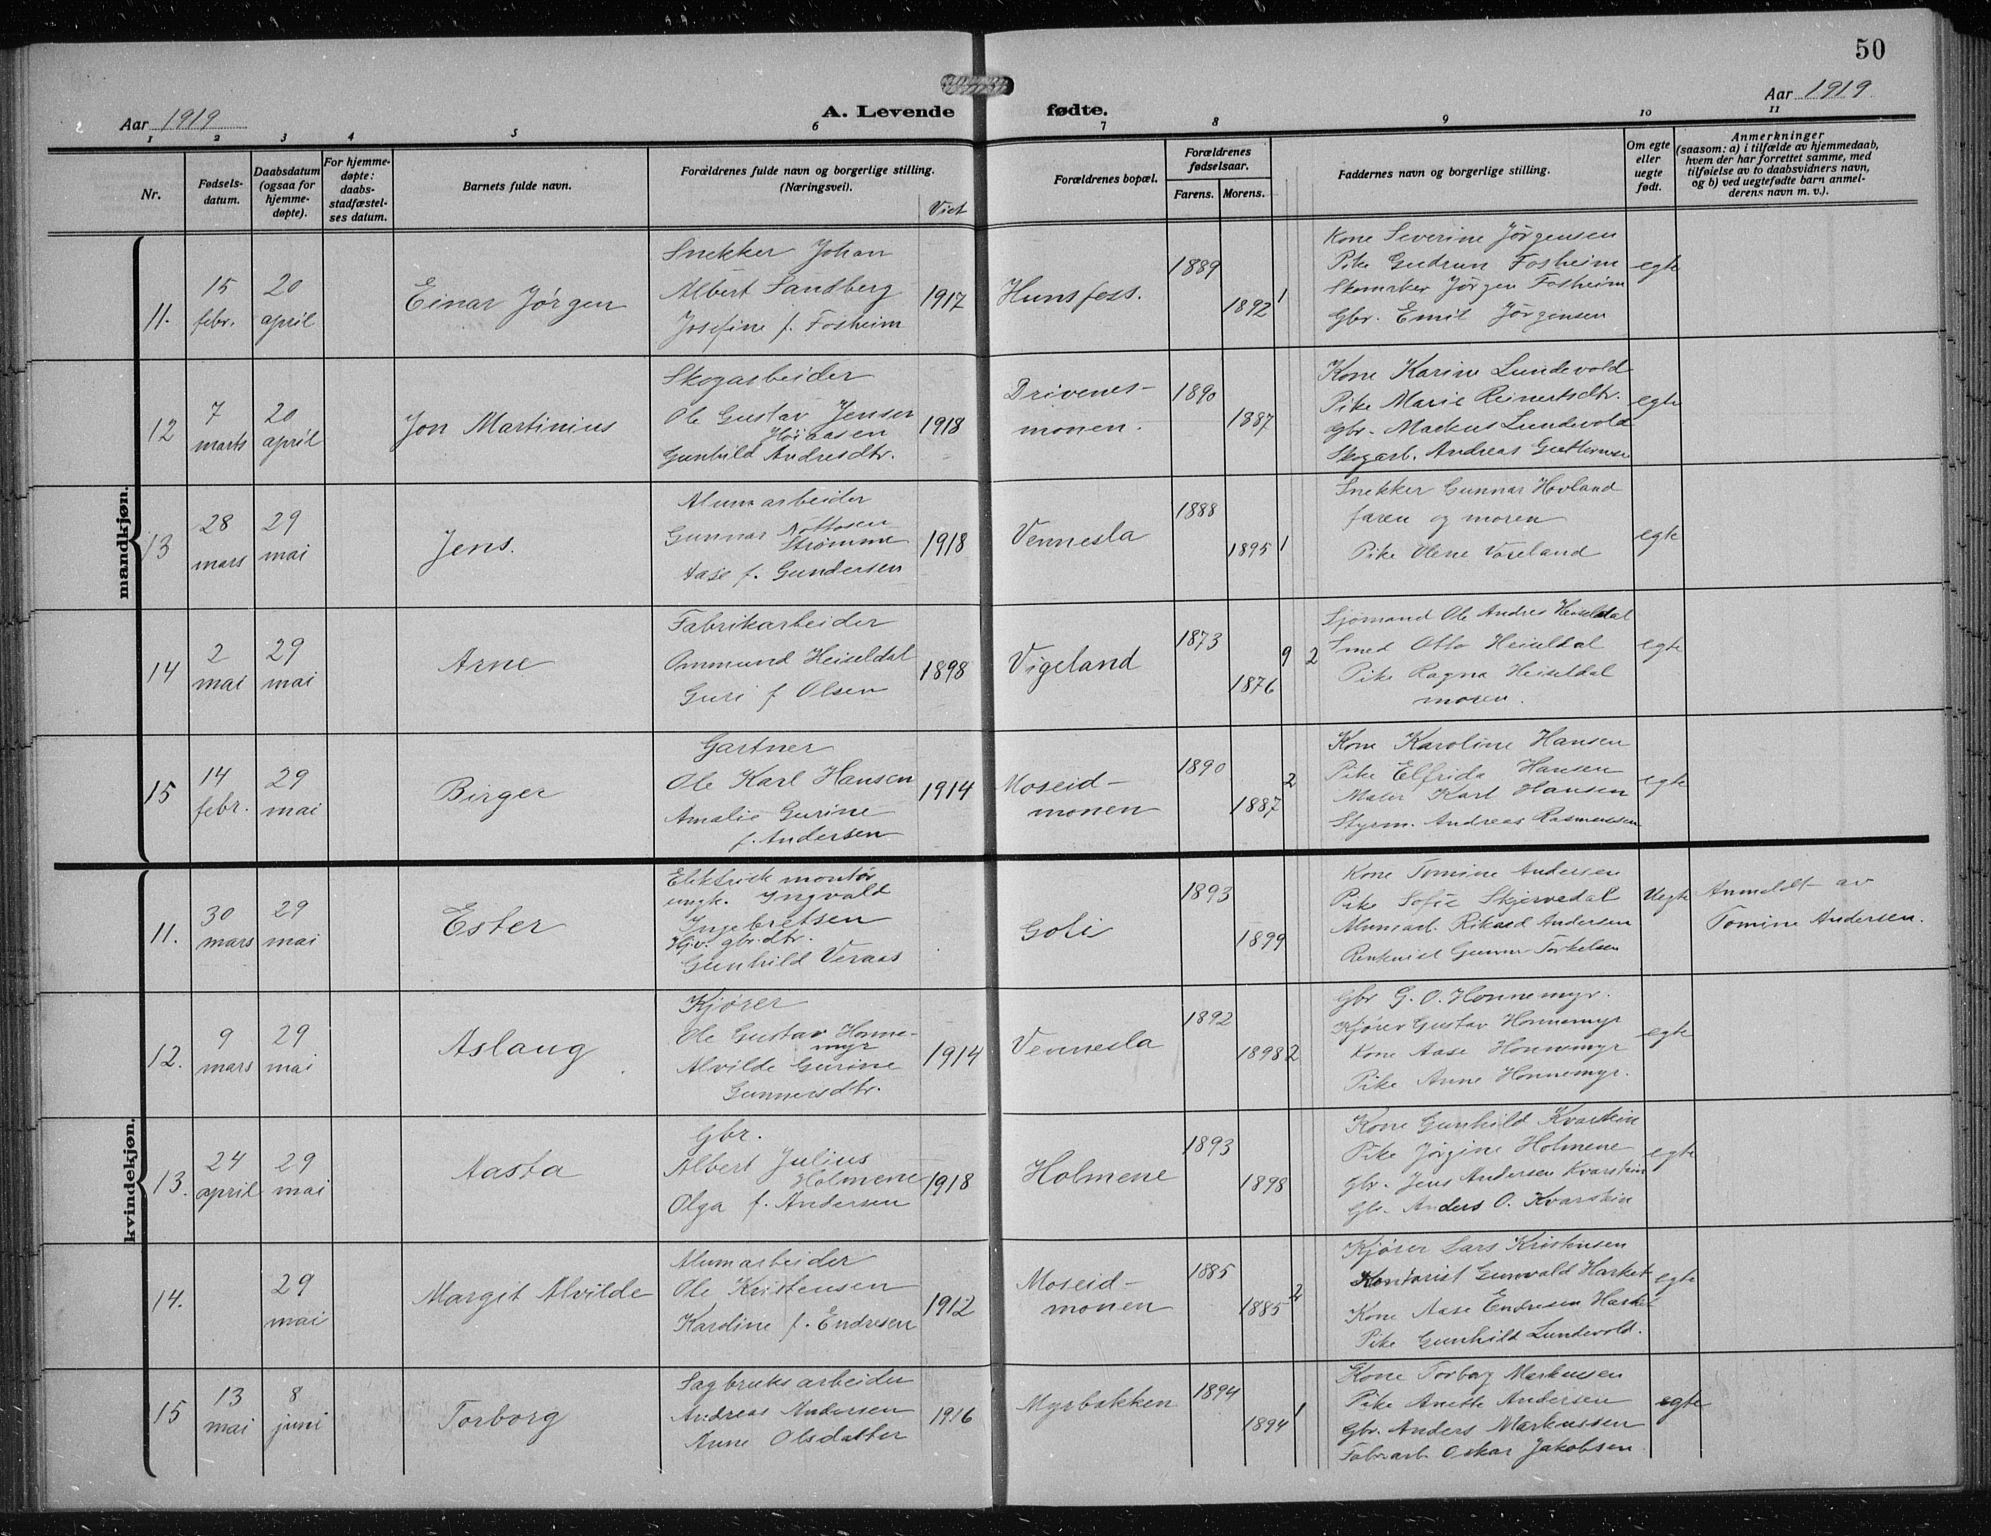 50
Aar 1919
A. Levende fødte.
Aar 1919
1 2 3 4 5 6 7 8 9 10 11
Nr.
Fødsels-
datum.
Daabsdatum
(ogsaa for
hjemme-
døpte).
For hjemme-
døpte:
daabs-
stadfæstel-
ses datum.
Barnets fulde navn.
Forældrenes fulde navn og borgerlige stilling.
(Næringsvei).
Viet
Forældrenes bopæl.
Forældrenes
fødselsaar.
Farens. Morens.
Faddernes navn og borgerlige stilling.
Om egte
eller
uegte
født.
Anmerkninger
(saasom: a) i tilfælde av hjemmedaab,
hvem der har forrettet samme, med
tilføielse av to daabsvidners navn,
og b) ved uegtefødte barn anmel-
derens navn m. v.).
mandkjøn.
11.
15
febr.
20
april
Einar Jørgen
Snekker Johan
Albert Sandberg
Josefine f. Fosheim
1917
Hunsfoss.
1889
1892
1
Kone Severine Jørgensen
Pike Gudrun Fosheim
Skomaker Jørgen Fosheim
Gbr. Emil Jørgensen
egte
12
7
marts
20
april
Jon Martinius
Skogarbeider
Ole Gustav Jensen
Høiaasen
Gunhild Andresdtr.
1918
Drivenes-
monen.
1890
1887
Kone Karine Lundevold
Pike Marie Reinertsdtr.
Gbr. Markus Lundevold
Skogarb. Andreas
egte
13
28
mars
29
mai
Jens.
Alumarbeider
Gunnar Nottosen
Strømme
Aase f. Gundersen
1918
Vennesla
1888
1895
1
Snekker Gunnar Hovland
faren og moren
Pike Olene Voreland
egte
14
2
mai
29
mai
Arne
Fabrikarbeider
Ommund Heiseldal
Guri f Olsen
1898
Vigeland
1873
1876
9 2
Sjømand Ole Andres Heiseldal
Smed Otto Heiseldal
Pike Ragna Heiseldal
moren.
egte
15
14
febr.
29
mai
Birger
Gartner
Ole Karl Hansen
Amalie Gurine
f. Andersen
1914
Moseid-
monen
1890
1887
2
Kone Karoline Hansen
Pike Elfrida Hansen
Maler Karl Hansen
Styrm. Andreas Rasmussen
egte
kvindekjøn.
11.
30
mars
29
mai
Ester
Elektrisk montør
ungk. Ingvald
Ingebretsen
Hjv. gbr.dtr.
Gunhild Veraas
Goli
1893
1899
Kone Tomine Andersen
Pike Sofie Skjervedal
Alumarb. Rikard Andersen
Gunnar Torkelsen
Uegte
Anmeldt av
Tomine Andersen.
12.
9
mars
29
mai
Aslaug
Kjører
Ole Gustav Honne-
myr
Alvilde Gurine
Gunnersdtr.
1914
Vennesla
1892
1898
2
Gbr G. O. Honnemyr.
Kjører Gustav Honnemyr
Kone Aase Honnemyr
Pike Anne Honnemyr.
egte
13.
24
april
29
mai
Aasta
Gbr.
Albert Julius
Holmene
Olga f. Andersen
1918
Holmene
1893
1898
Kone Gunhild Kvarstein
Pike Jørgine Holmene
Gbr. Jens Andersen Kvarstein
Gbr. Anders O. Kvarstein
egte
14.
29
mai
Margit Alvilde
Alumarbeider
Ole Kristensen
Karoline f. Endresen
1912
Moseid-
monen
1885
1885
2
Kjører Lars Kristensen
Kontorist Gunvald Harket
Kone Aase Endresen Harket
Pike Gunhild Lundevold.
egte
15
13
mai
8
juni
Torborg
Sagbruksarbeider
Andreas Andersen
Anne Olsdatter
1916
Myrbakken
1894
1894
1
Kone Torborg Markussen
Pike Anette Andersen
Gbr. Anders Markussen
Fabr.arb. Oskar Jakobsen.
egte